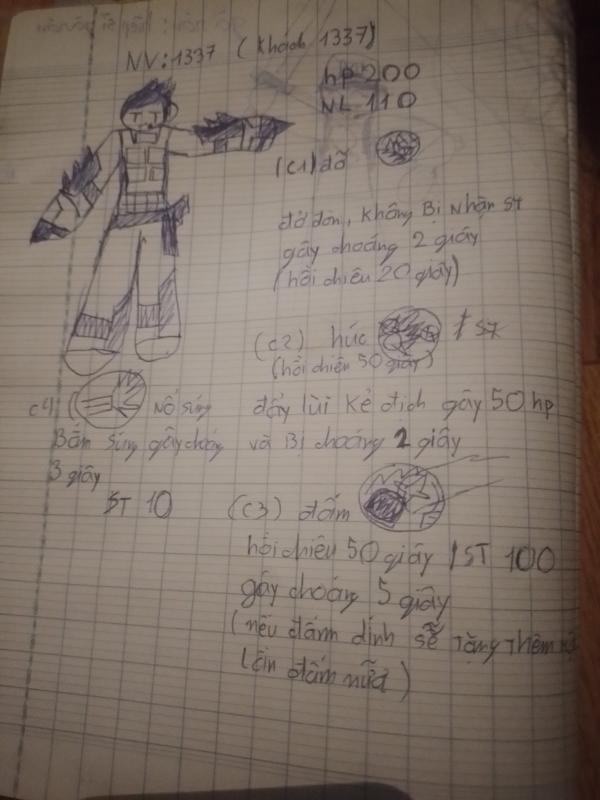 NV: 1337 (Khách 1337)
hp 200
NL 110
(C1) đỡ
đỡ đòn, không Bị Nhận ST
gây choáng 2 giây
(hồi chiêu 20 giây)
(C2) húc / ST
(hồi chiêu 50 giây)
C4) ( Nổ súng
đẩy lùi kẻ địch gây 50 hp
Bắn súng gây choáng
và Bị choáng 2 giây
3 giây
ST 10
(C3) đấm
hồi chiêu 50 giây / ST 100
gây choáng 5 giây
(nếu đấm dính sẽ Tặng Thêm
lần đấm nữa)